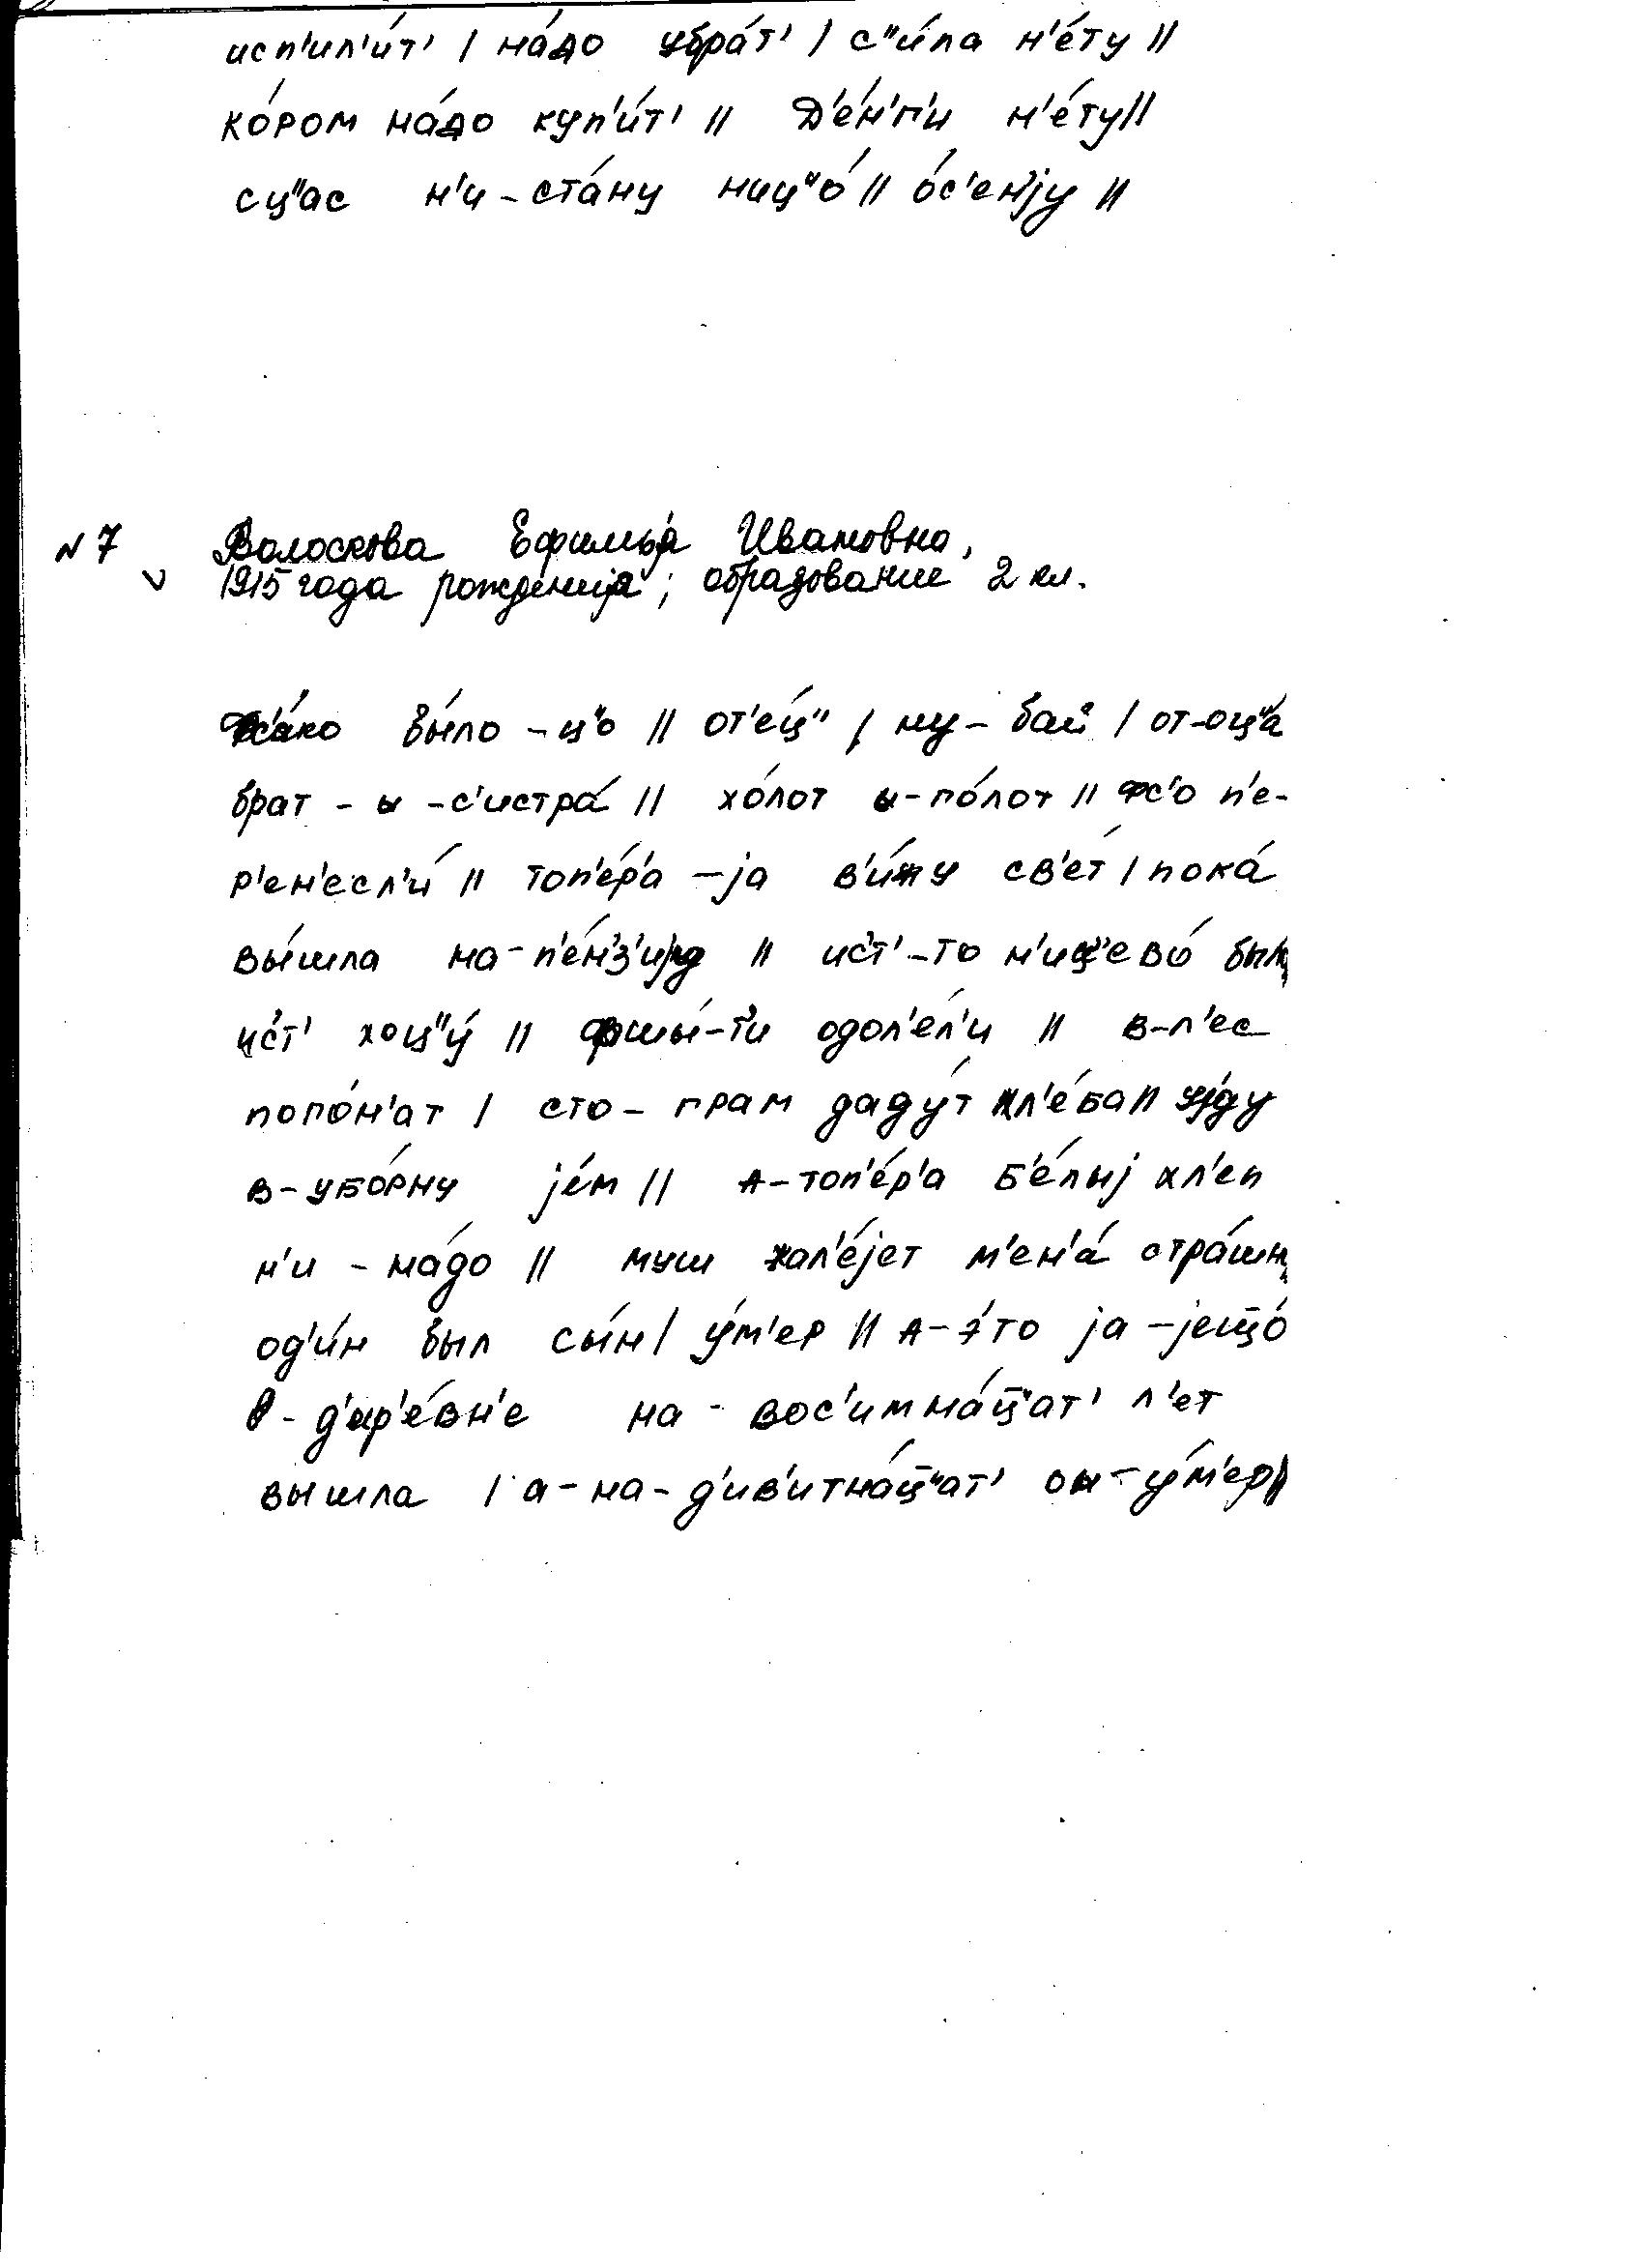 исп'ил'и́т' / на́до убра́т' / с"и́ла н'е́ту //
ко́ром на́до куп'и́т' // Д'е́н'г'и н'е́ту //
сц"ас н'и - ста́ну ниц"о́ // о́с'ен'jу //
N 7 Волоскова Ефимья Ивановна,
v 1915 года рождения; образование 2 кл.
фс'а́ко бы́ло - ц"о // от'е́ц" / му - бай / от-оц"а́
брат - ы - с'истра́ // хо́лот ы - го́лот // фс'о п'е-
р'ен'есл'и́ // топ'е́р'а - jа в'и́жу св'ет / пока́
вы́шла на - // ист' - то н'иц"ево́
ист' хоц"у́ // фшы́ - т'и одол'е́л'и // в - л'ес
пого́н'ат / сто - грам даду́т хл'е́ба // уjду
в - убо́рну jе́м // А - топ'е́р'а б'е́лыj хл'еп
н'и - на́до // муш жал'е́jет м'ен'а́
од'и́н был сы́н / у́м'ер // А - э́то jа - jещо́
в - д'ир'е́вн'е на - вос'имна́ц"ат' л'ет
вышла / а - на - д'ив'итна́ц"ат' он - у́м'ер //